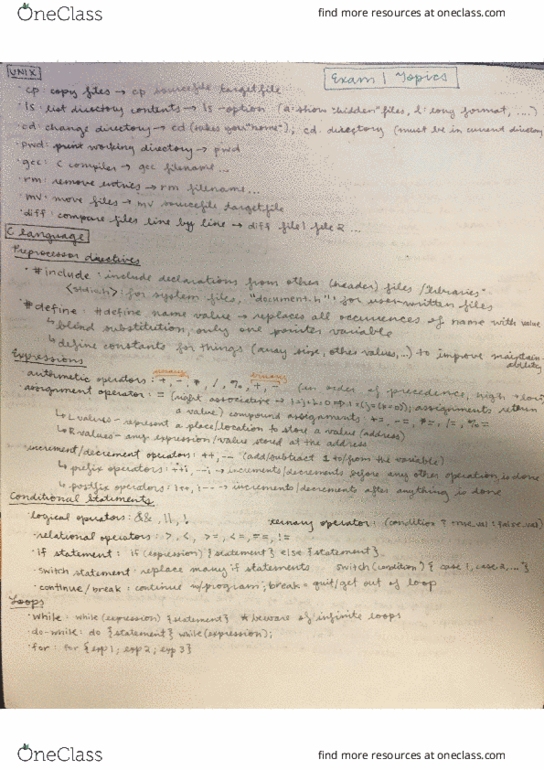 OneClass
find more resources at oneclass.com
UNIX
Exam 1 Topics
· cp: copy files → cp sourcefile targetfile
· ls: list directory contents → ls -option (a: show "hidden" files, l: long format, ....)
· cd: change directory → cd (takes you "home"); cd directory (must be in current directory
· pwd: print working directory → pwd
· gcc: C compiler → gcc filename...
· rm: remove entries → rm filename...
· mv: move files → mv sourcefile targetfile
· diff: compare files line by line → diff file1 file2 ...
C language
Preprocessor directives
· #include: include declarations from other (header) files / "libraries"
<stdio.h>: for system files, "document.h": for user-written files
· #define: #define name value → replaces all occurences of name with value
↳ blind substitution, only one variable
↳ define constants for things (array size, other values,...) to improve
Expressions
unary binary
· arithmetic operators: +, -, *, /, %, +, - (in order of precedence, high → low)
· assignment operator: = (right associative → assignments return
a value) compound assignments: +=, -=, *=, /=, %=
↳ L values - represent a place/location to store a value/address)
↳ R values - any expression/value stored at the address
· increment/decrement operators: ++, -- (add/subtract 1 to/from the variable)
↳ prefix operators: ++i, --i → increments/decrements before any other operation is done
↳ postfix operators: i++, i-- → increments/decrements after anything is done
Conditional Statements
· logical operators: &&, ||, ! ternary operator: (condition ?
· relational operators: >, <, >=, <=, ==, !=
· if statement: if (expression) {statement} else {statement}
· switch statement: replace many if statements switch (condition) { case 1, case 2, ..."}
· continue/break: continue w/program; break = quit/get out of loop
Loops
· while: while (expression) {statement} * beware of infinite loops
· do-while: do {statement} while (expression);
· for: for {exp 1; exp 2; exp 3}
OneClass
find more resources at oneclass.com